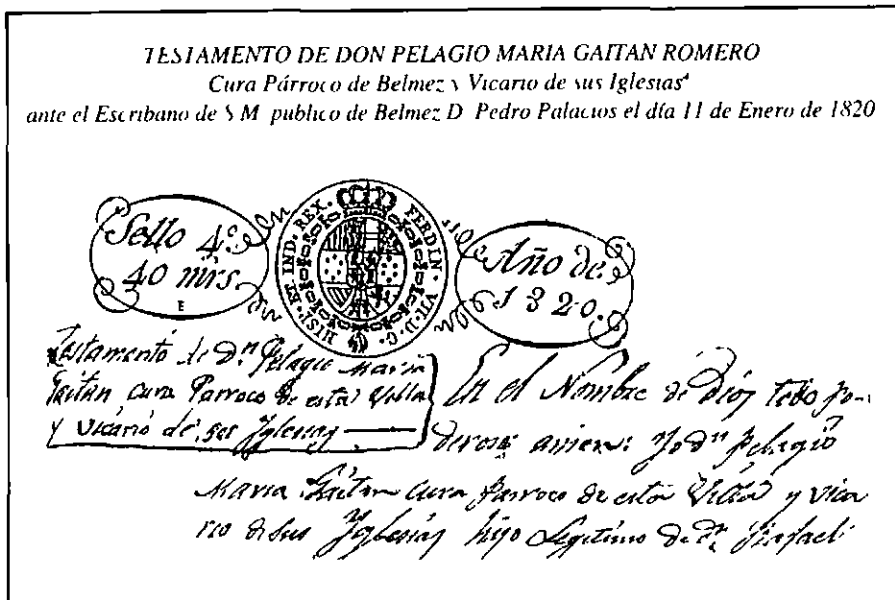 TESTAMENTO DE DON PELAGIO MARIA GAITAN ROMERO
Cura Párroco de Belmez y Vicario de sus Iglesias⁴
ante el Escribano de S M publico de Belmez D Pedro Palacios el día 11 de Enero de 1820
Sello 4º
40 mrs.
HISP. ET IND. REX. FERDIN. VII. D. G.
Año de
1820.
Testamento de Dⁿ Pelagio Maria
Gaitan cura Parroco de esta Villa
y Vicario de sus Yglesias
En el Nombre de Dios todo po-
deroso amen: Yo dⁿ Pelagio
Maria Gaitan cura Parroco de esta Villa y vica
rio de sus Yglesias hijo Legitimo de Dⁿ Rafael